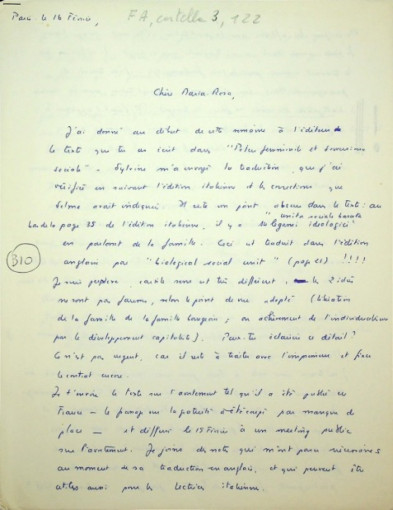 Paris le 14 Février, FA, cartella 3, 122
Chère Maria-Rosa,
J'ai donné au début de cette semaine à l'éditeur
le texte que tu as écrit dans "Potere femminile et sovversione
sociale". Sylvine m'a envoyé la traduction, que j'ai
vérifiée en suivant l'édition italienne et les corrections que
Selma avait indiquées. Il reste un point obscur dans le texte : au
bas de la page 35 de l'édition italienne, il y a "unità sociale basata
su legami ideologici
en parlant de la famille. Ceci est traduit dans l'édition
anglaise par "biological social unit" (page ) !!!!
310
Je suis perplexe, car le sens est très différent, les 2 idées
me vont pas faux, selon le point de vue adopté (
de la famille de la famille bourgeoise, ou achèvement de l'individualisme
par le développement capitaliste). Peux-tu éclaircir ce détail?
Ce n'est pas urgent, car il reste à traiter avec l'imprimeur et fixer
le contrat encore.
Je t'envoie le texte sur l'avortement tel qu'il a été publié en
France - le passage sur la gratuité a été coupé par manque de
place - et diffusé le 13 Février à un meeting public
sur l'avortement. Je joins des notes qui m'ont paru nécessaires
au moment de sa traduction en anglais, et qui peuvent être
utiles aussi pour les lectrices italiennes.